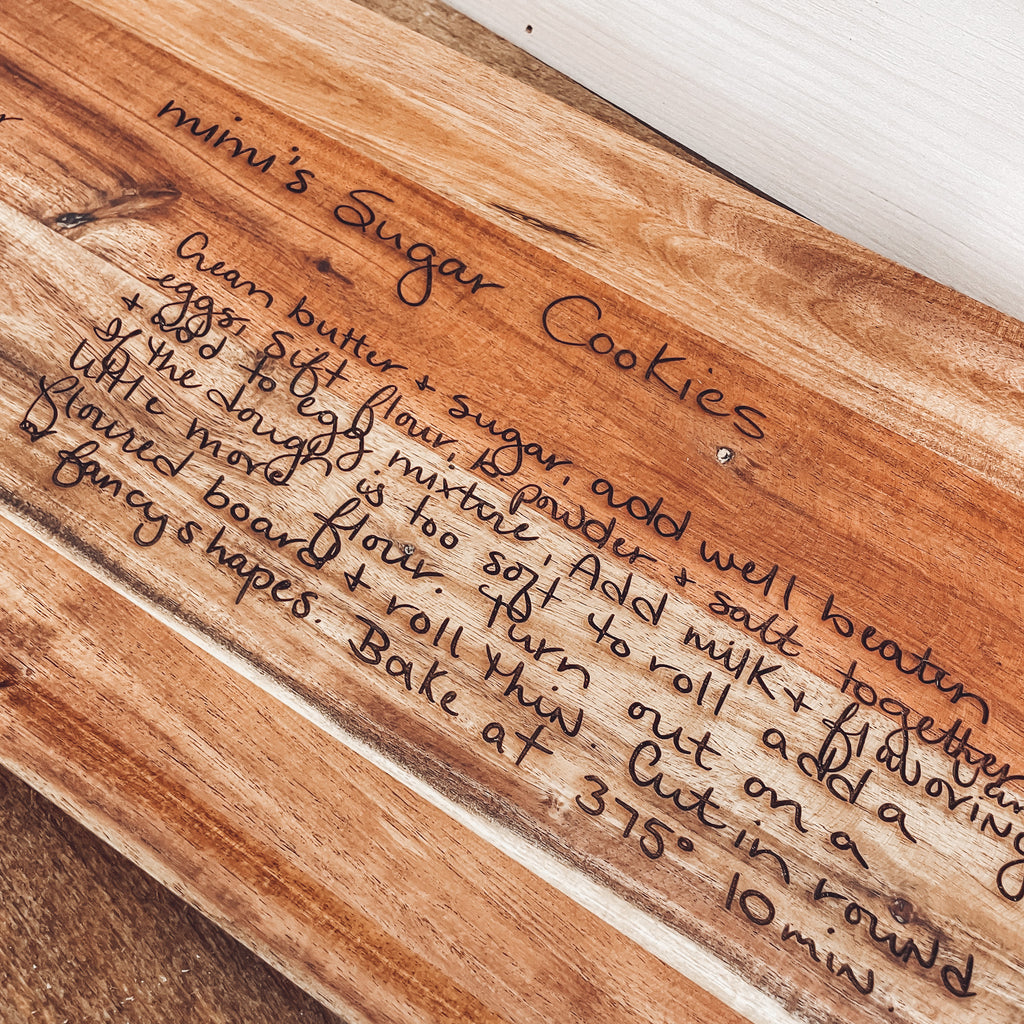 mimi's Sugar Cookies
Cream butter + sugar, add well beaten
eggs, Sift flour, b. powder + salt together
+ add to egg mixture, Add milk + flavoring
If the dough is too soft to roll add a
little more flour. Turn out on a
floured board + roll thin. Cut in round
or fancy shapes. Bake at 375° 10 min